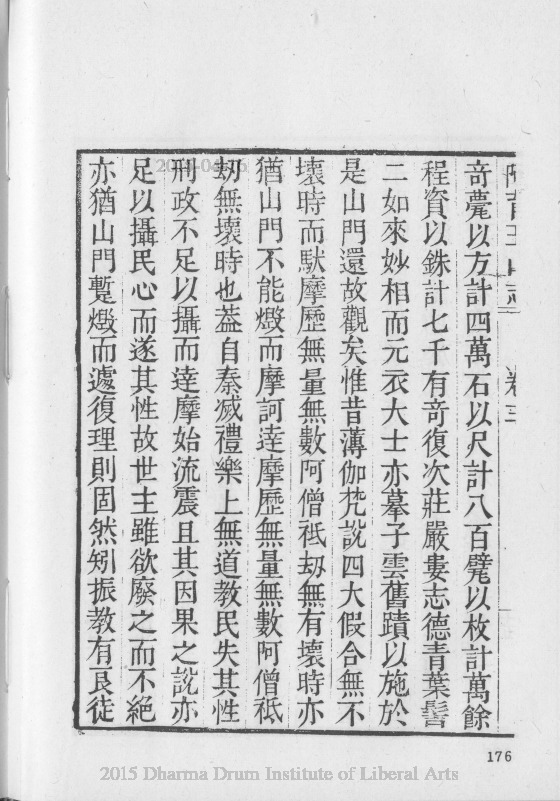 阿育王山志　卷三
奇甓以方計四萬石以尺計八百甓以枚計萬餘
程資以銖計七千有奇復次莊嚴婁志德青葉髻
二如來妙相而元衣大士亦摹子雲舊蹟以施於
是山門還故觀矣惟昔薄伽梵說四大假合無不
壞時而䭾摩歷無量無數阿僧祇刼無有壞時亦
猶山門不能燬而摩訶達摩歷無量無數阿僧祇
刼無壞時也葢自秦滅禮樂上無道教民失其性
刑政不足以攝而達摩始流震且其因果之說亦
足以攝民心而遂其性故世主雖欲廢之而不絕
亦猶山門蹔燬而遽復理則固然矧振教有良徒
176
2015 Dharma Drum Institute of Liberal Arts